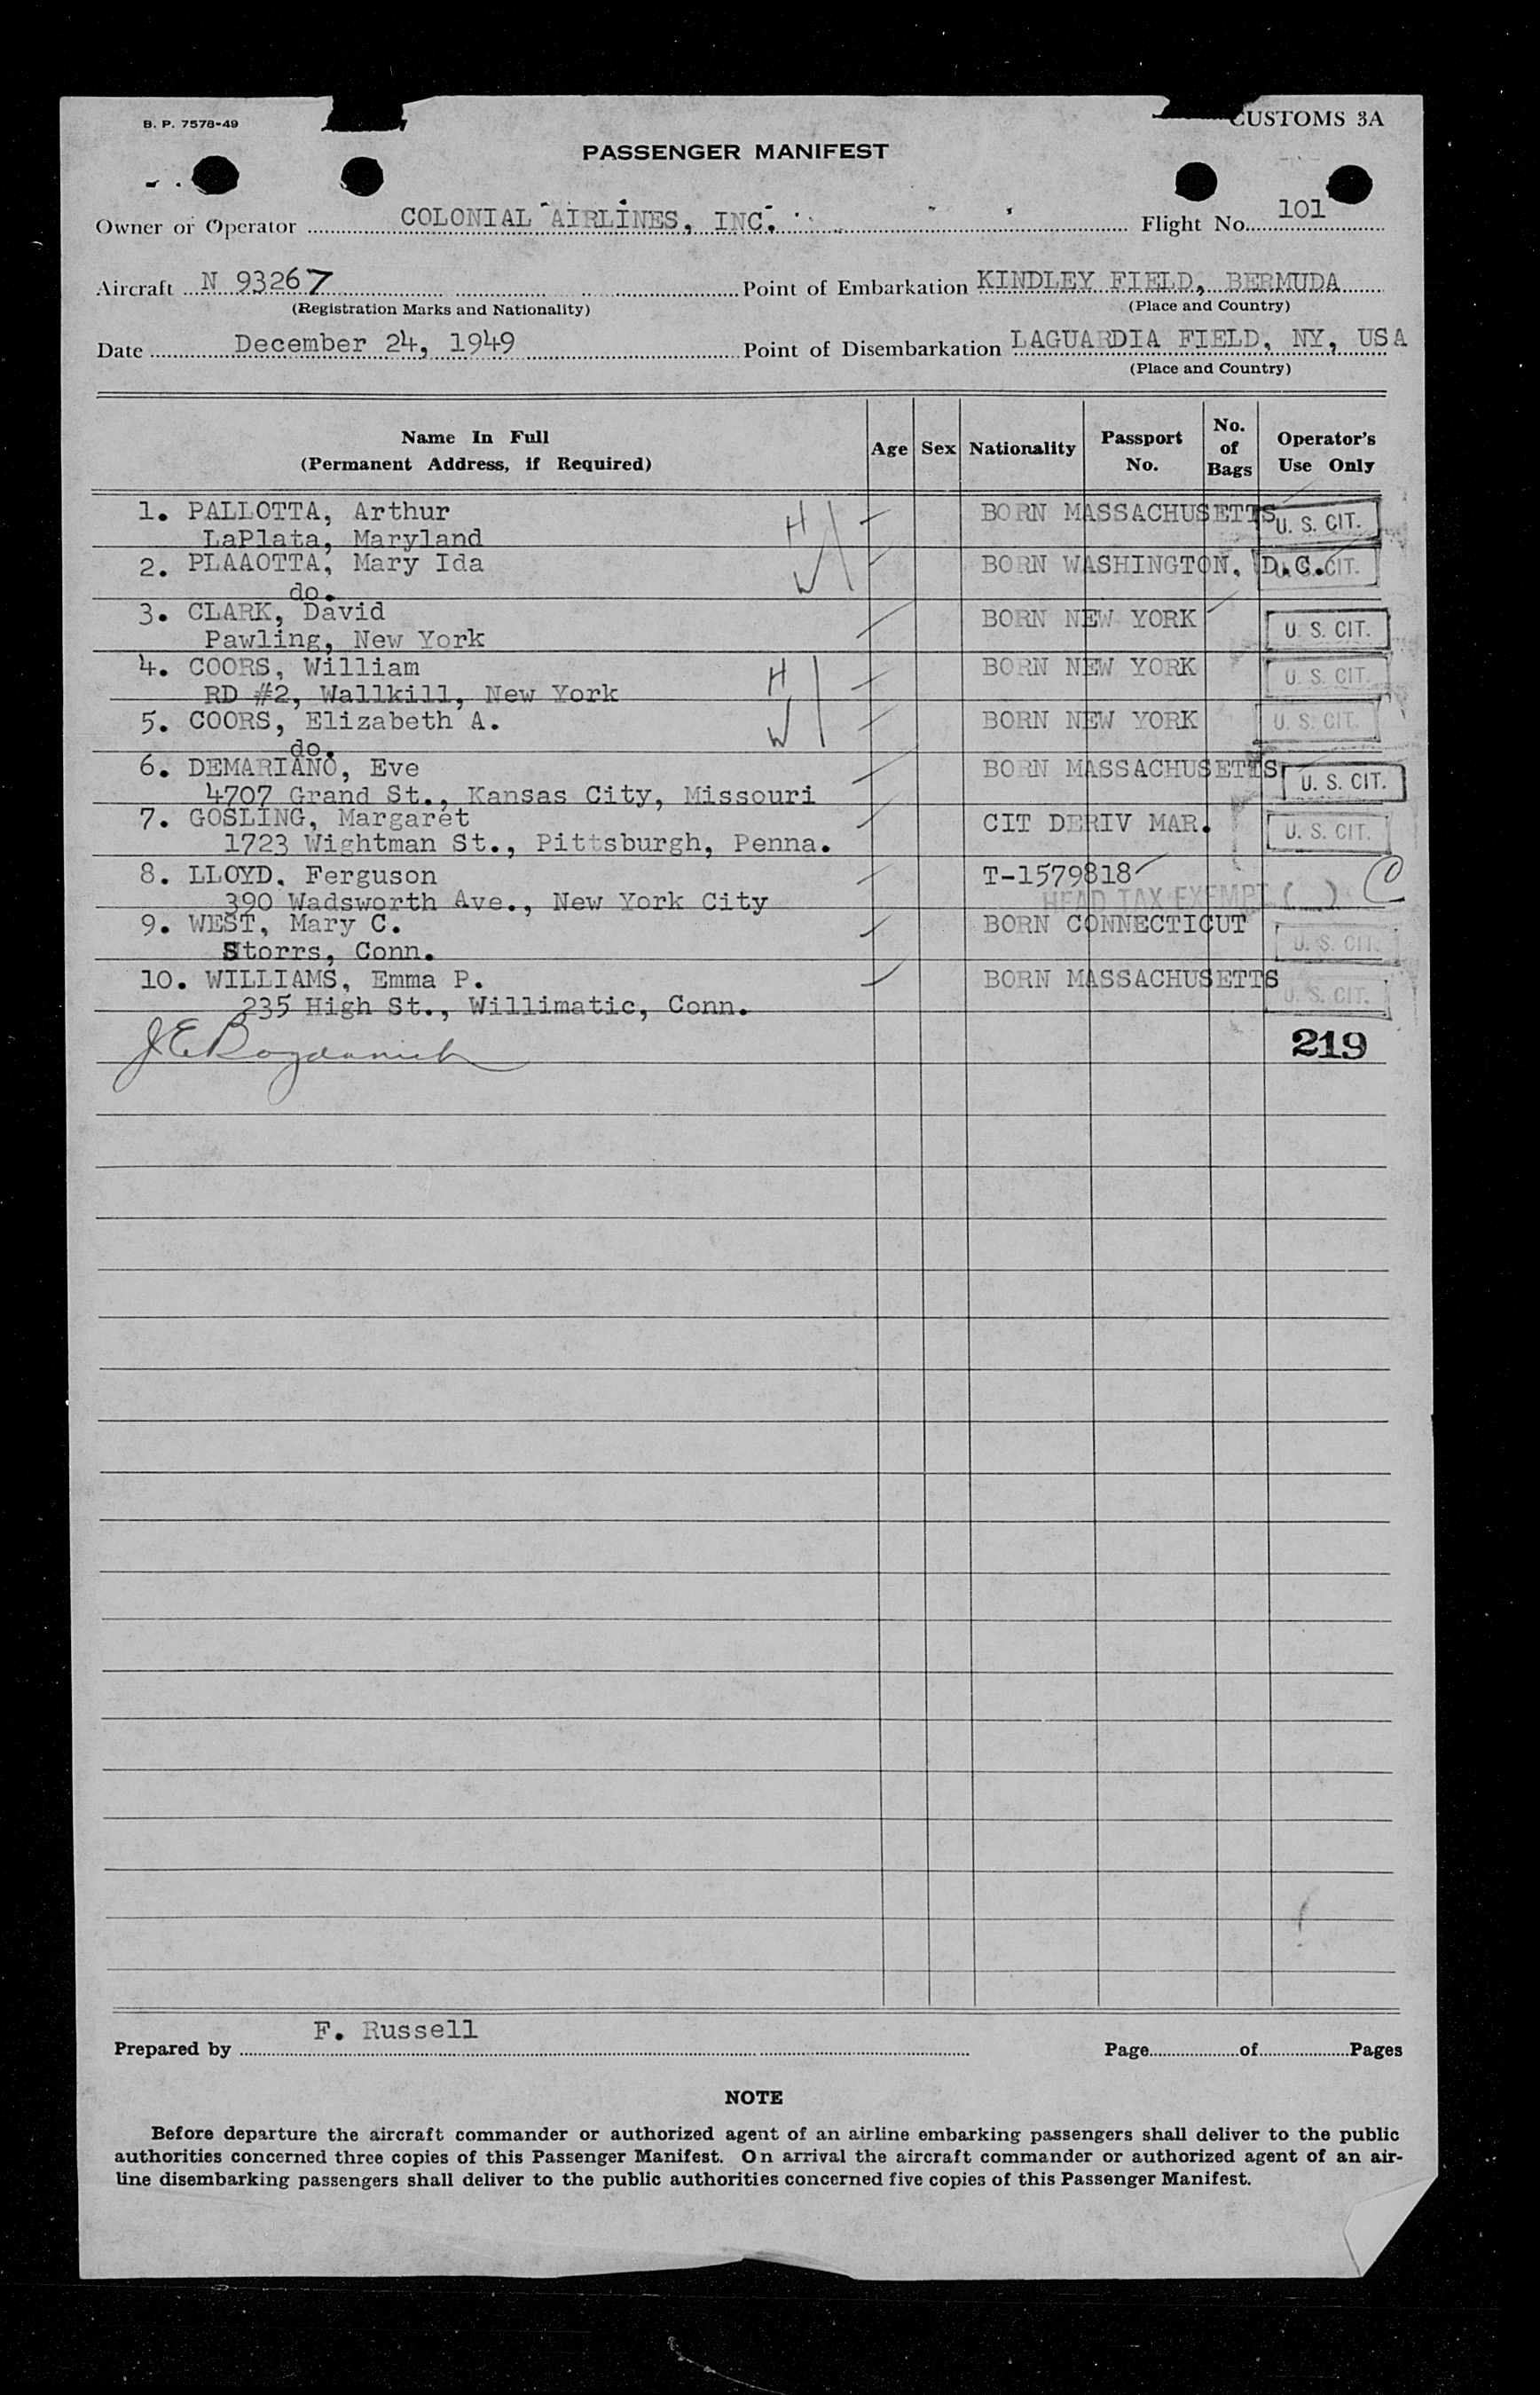 B. P. 7578-49
CUSTOMS 3A
PASSENGER MANIFEST
Owner or Operator COLONIAL AIRLINES, INC. Flight No. 101
Aircraft N 93267 Point of Embarkation KINDLEY FIELD, BERMUDA
(Registration Marks and Nationality) (Place and Country)
Date December 24, 1949 Point of Disembarkation LAGUARDIA FIELD, NY, USA
(Place and Country)
Name In Full (Permanent Address, if Required) Age Sex Nationality Passport No. No. of Bags Operator's Use Only
1. PALLOTTA, Arthur BORN MASSACHUSETTS U. S. CIT.
LaPlata, Maryland H
2. PLAAOTTA, Mary Ida W BORN WASHINGTON, D.C. CIT.
do.
3. CLARK, David BORN NEW YORK U. S. CIT.
Pawling, New York
4. COORS, William H BORN NEW YORK U. S. CIT.
RD #2, Wallkill, New York
5. COORS, Elizabeth A. W BORN NEW YORK U. S. CIT.
do.
6. DEMARIANO, Eve BORN MASSACHUSETTS U. S. CIT.
4707 Grand St., Kansas City, Missouri
7. GOSLING, Margaret CIT DERIV MAR. U. S. CIT.
1723 Wightman St., Pittsburgh, Penna.
8. LLOYD, Ferguson T-1579818 C
390 Wadsworth Ave., New York City HEAD TAX EXEMPT ( )
9. WEST, Mary C. BORN CONNECTICUT U. S. CIT.
Storrs, Conn.
10. WILLIAMS, Emma P. BORN MASSACHUSETTS U. S. CIT.
235 High St., Willimatic, Conn.
219
F. Russell
Prepared by Page of Pages
NOTE
Before departure the aircraft commander or authorized agent of an airline embarking passengers shall deliver to the public
authorities concerned three copies of this Passenger Manifest. On arrival the aircraft commander or authorized agent of an air-
line disembarking passengers shall deliver to the public authorities concerned five copies of this Passenger Manifest.